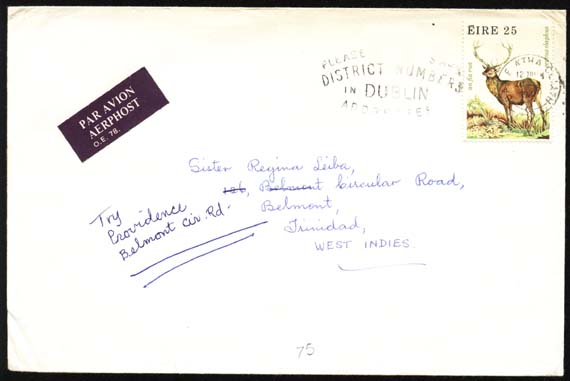 PLEASE
DISTRICT NUMBERS
IN DUBLIN
ADDRESSES
ÉIRE 25
an fia rua
PAR AVION
AERPHOST
O.E. 78.
Sister Regina Leiba,
126, Belmont Circular Road,
Belmont,
Trinidad,
WEST INDIES.
Try
Providence
Belmont Cir. Rd.
75